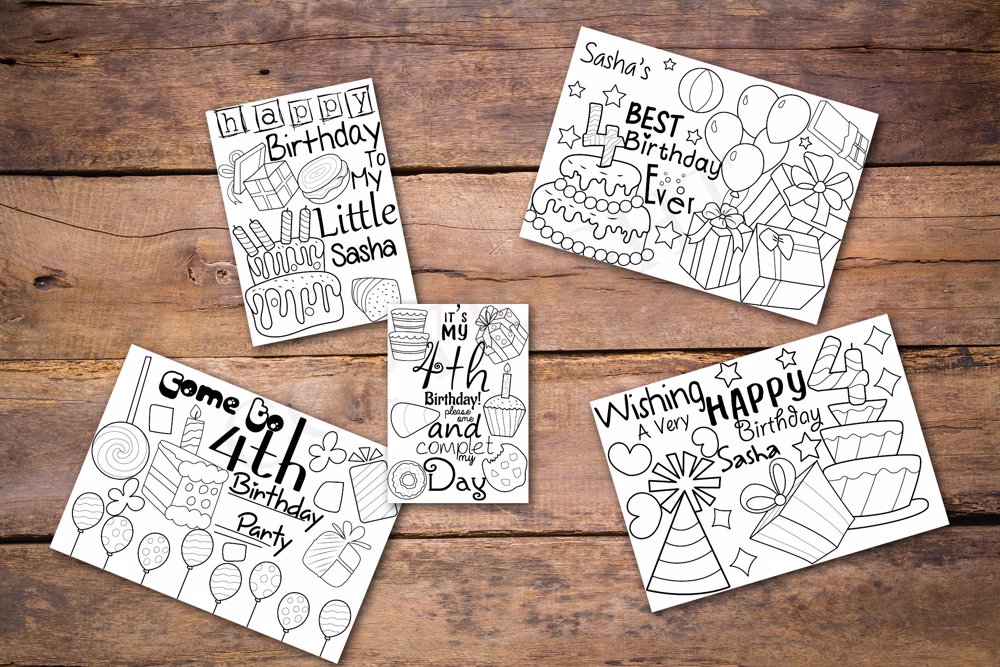 happy
Birthday
To
My
Little
Sasha
Sasha's
4
BEST
Birthday
Ever
IT'S
MY
4th
Birthday!
please
ome
and
complet
my
Day
Come to
4th
Birthday
Party
Wishing
A Very
HAPPY
Birthday
Sasha
4